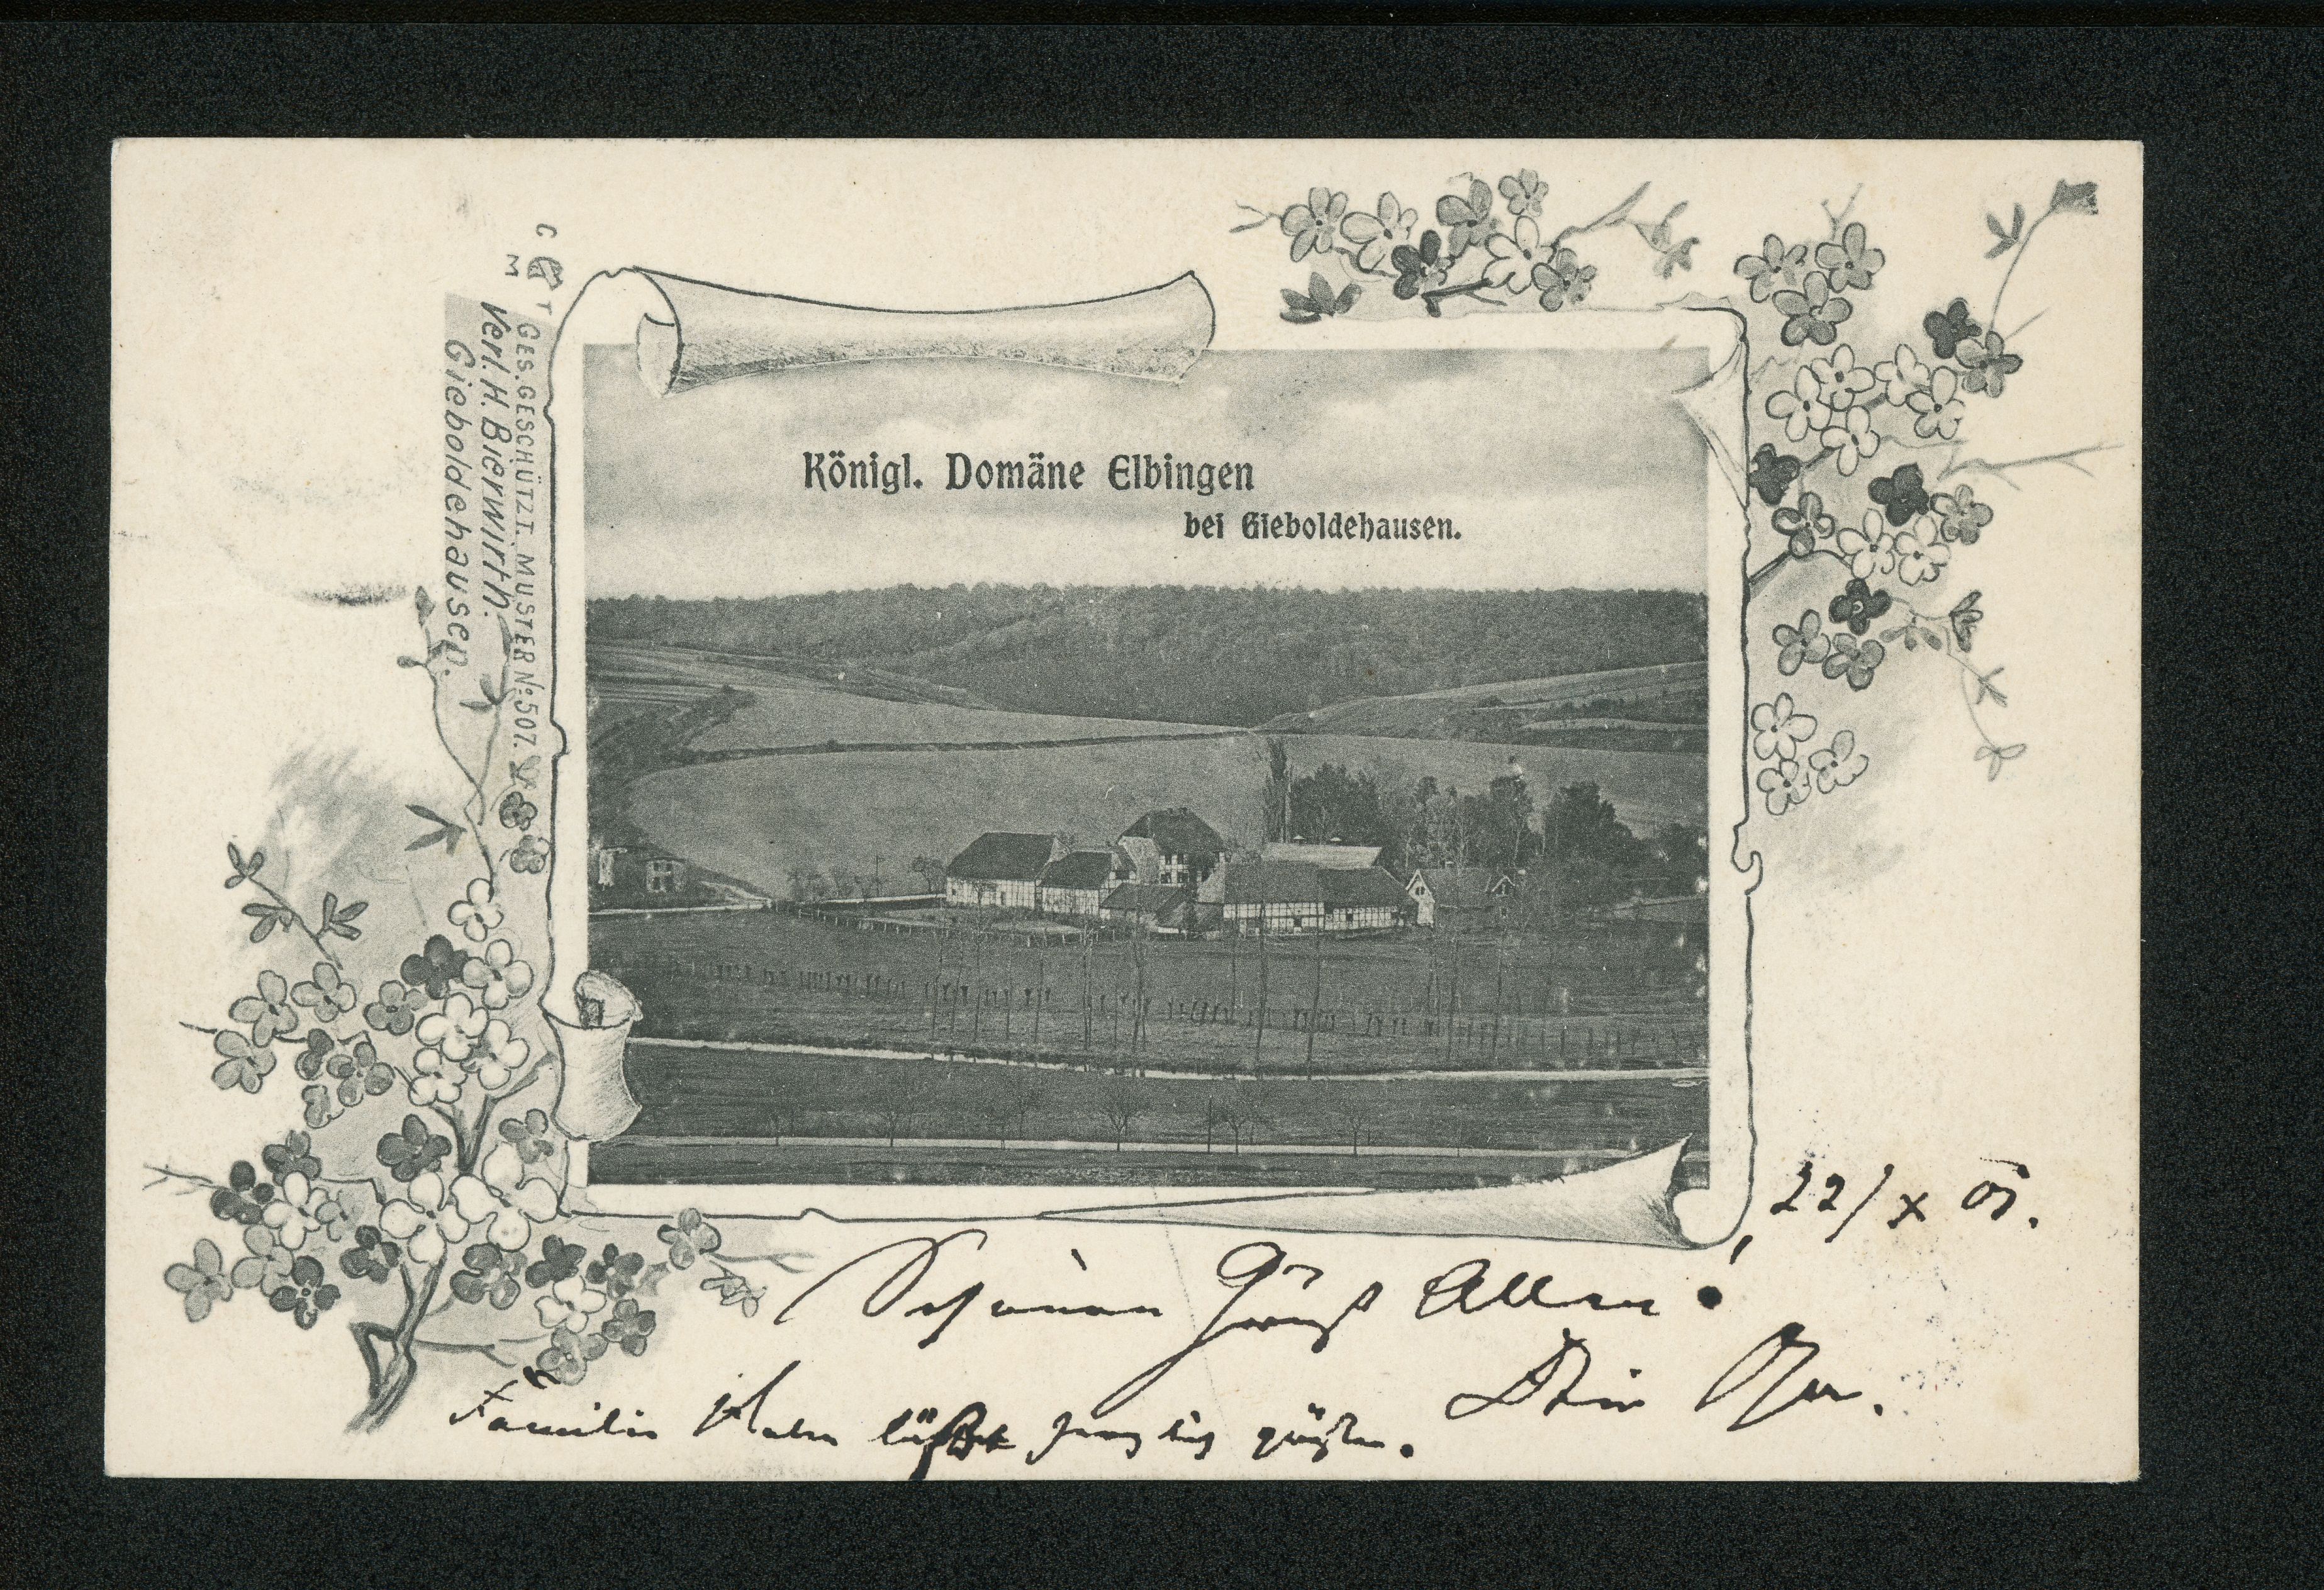 Königl. Domäne Elbingen
bei Gieboldehausen.
GES. GESCHÜTZT. MUSTER No: 507.
Verl. H. Bierwirth.
Gieboldehausen.
22/X 05.
Schönen Gruß Allen!
Dein
Familie läßt grüßen.